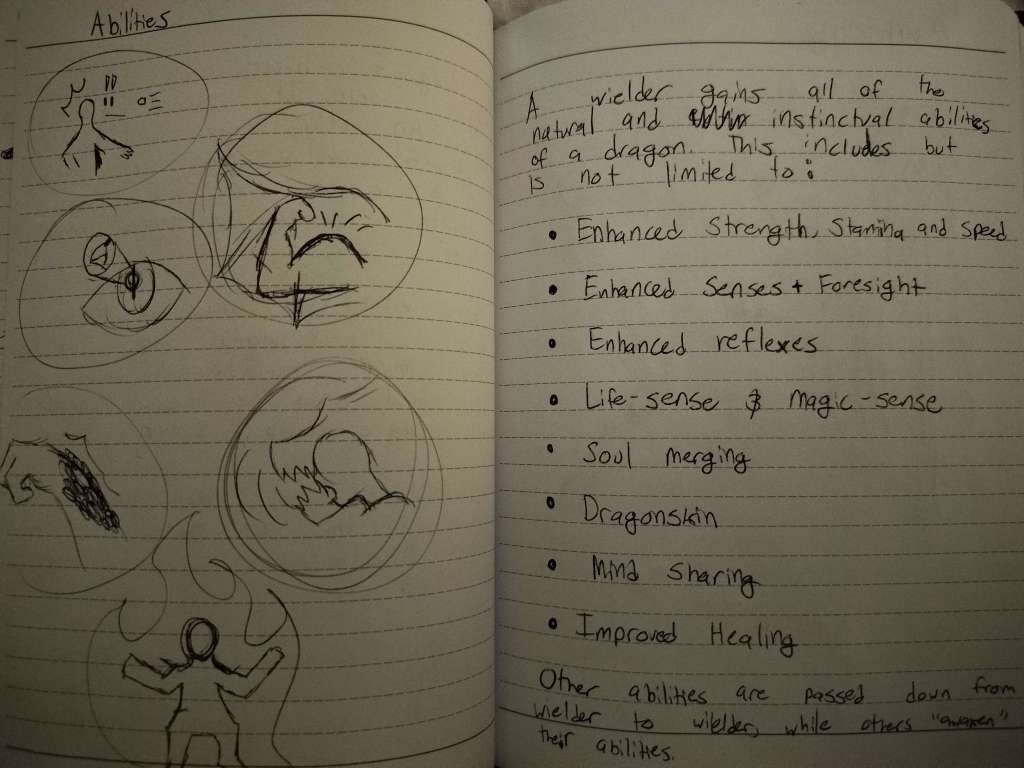 Abilities
A wielder gains all of the
natural and instinctual abilities
of a dragon. This includes but
is not limited to:
• Enhanced Strength, Stamina and Speed
• Enhanced Senses + Foresight
• Enhanced reflexes
• Life-sense & Magic-sense
• Soul merging
• Dragonskin
• Mind Sharing
• Improved Healing
Other abilities are passed down from
wielder to wielder, while others "awaken"
their abilities.